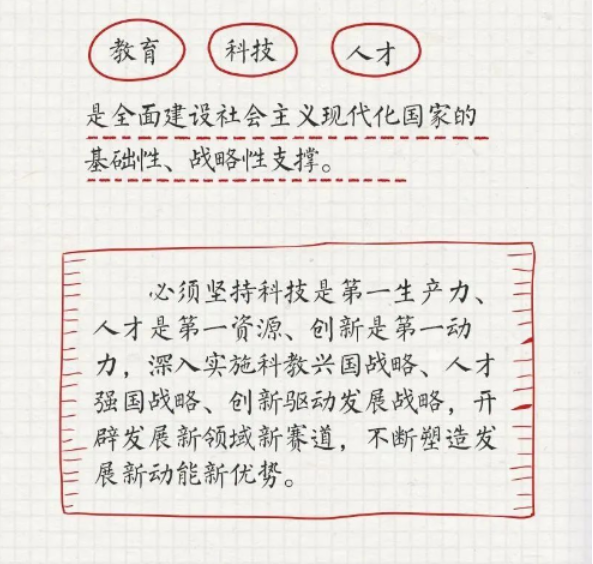 教育 科技 人才
是全面建设社会主义现代化国家的
基础性、战略性支撑。
必须坚持科技是第一生产力、
人才是第一资源、创新是第一动
力，深入实施科教兴国战略、人才
强国战略、创新驱动发展战略，开
辟发展新领域新赛道，不断塑造发
展新动能新优势。